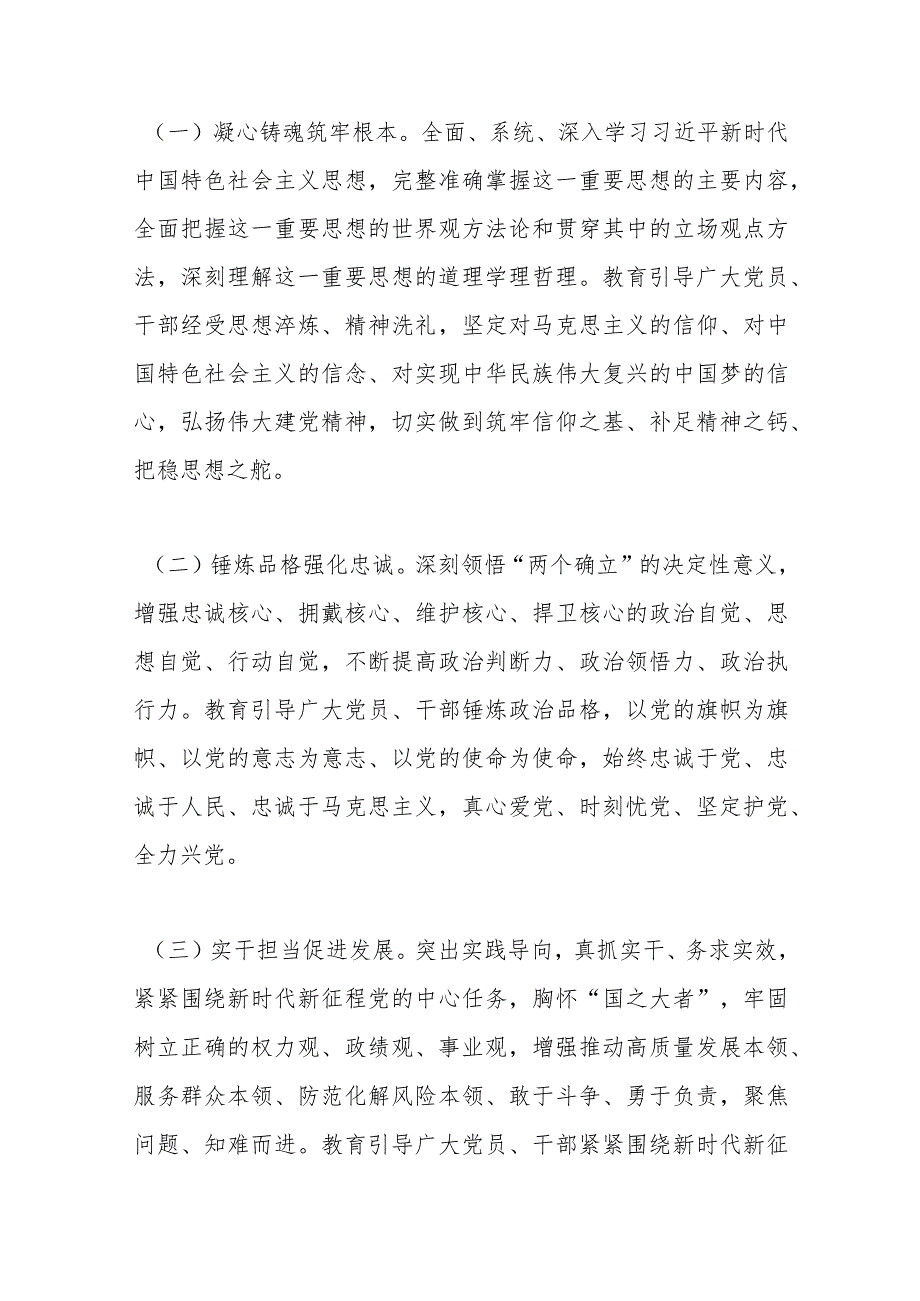 （一）凝心铸魂筑牢根本。全面、系统、深入学习习近平新时代
中国特色社会主义思想，完整准确掌握这一重要思想的主要内容，
全面把握这一重要思想的世界观方法论和贯穿其中的立场观点方
法，深刻理解这一重要思想的道理学理哲理。教育引导广大党员、
干部经受思想淬炼、精神洗礼，坚定对马克思主义的信仰、对中
国特色社会主义的信念、对实现中华民族伟大复兴的中国梦的信
心，弘扬伟大建党精神，切实做到筑牢信仰之基、补足精神之钙、
把稳思想之舵。
（二）锤炼品格强化忠诚。深刻领悟“两个确立”的决定性意义，
增强忠诚核心、拥戴核心、维护核心、捍卫核心的政治自觉、思
想自觉、行动自觉，不断提高政治判断力、政治领悟力、政治执
行力。教育引导广大党员、干部锤炼政治品格，以党的旗帜为旗
帜、以党的意志为意志、以党的使命为使命，始终忠诚于党、忠
诚于人民、忠诚于马克思主义，真心爱党、时刻忧党、坚定护党、
全力兴党。
（三）实干担当促进发展。突出实践导向，真抓实干、务求实效，
紧紧围绕新时代新征程党的中心任务，胸怀“国之大者”，牢固
树立正确的权力观、政绩观、事业观，增强推动高质量发展本领、
服务群众本领、防范化解风险本领、敢于斗争、勇于负责，聚焦
问题、知难而进。教育引导广大党员、干部紧紧围绕新时代新征